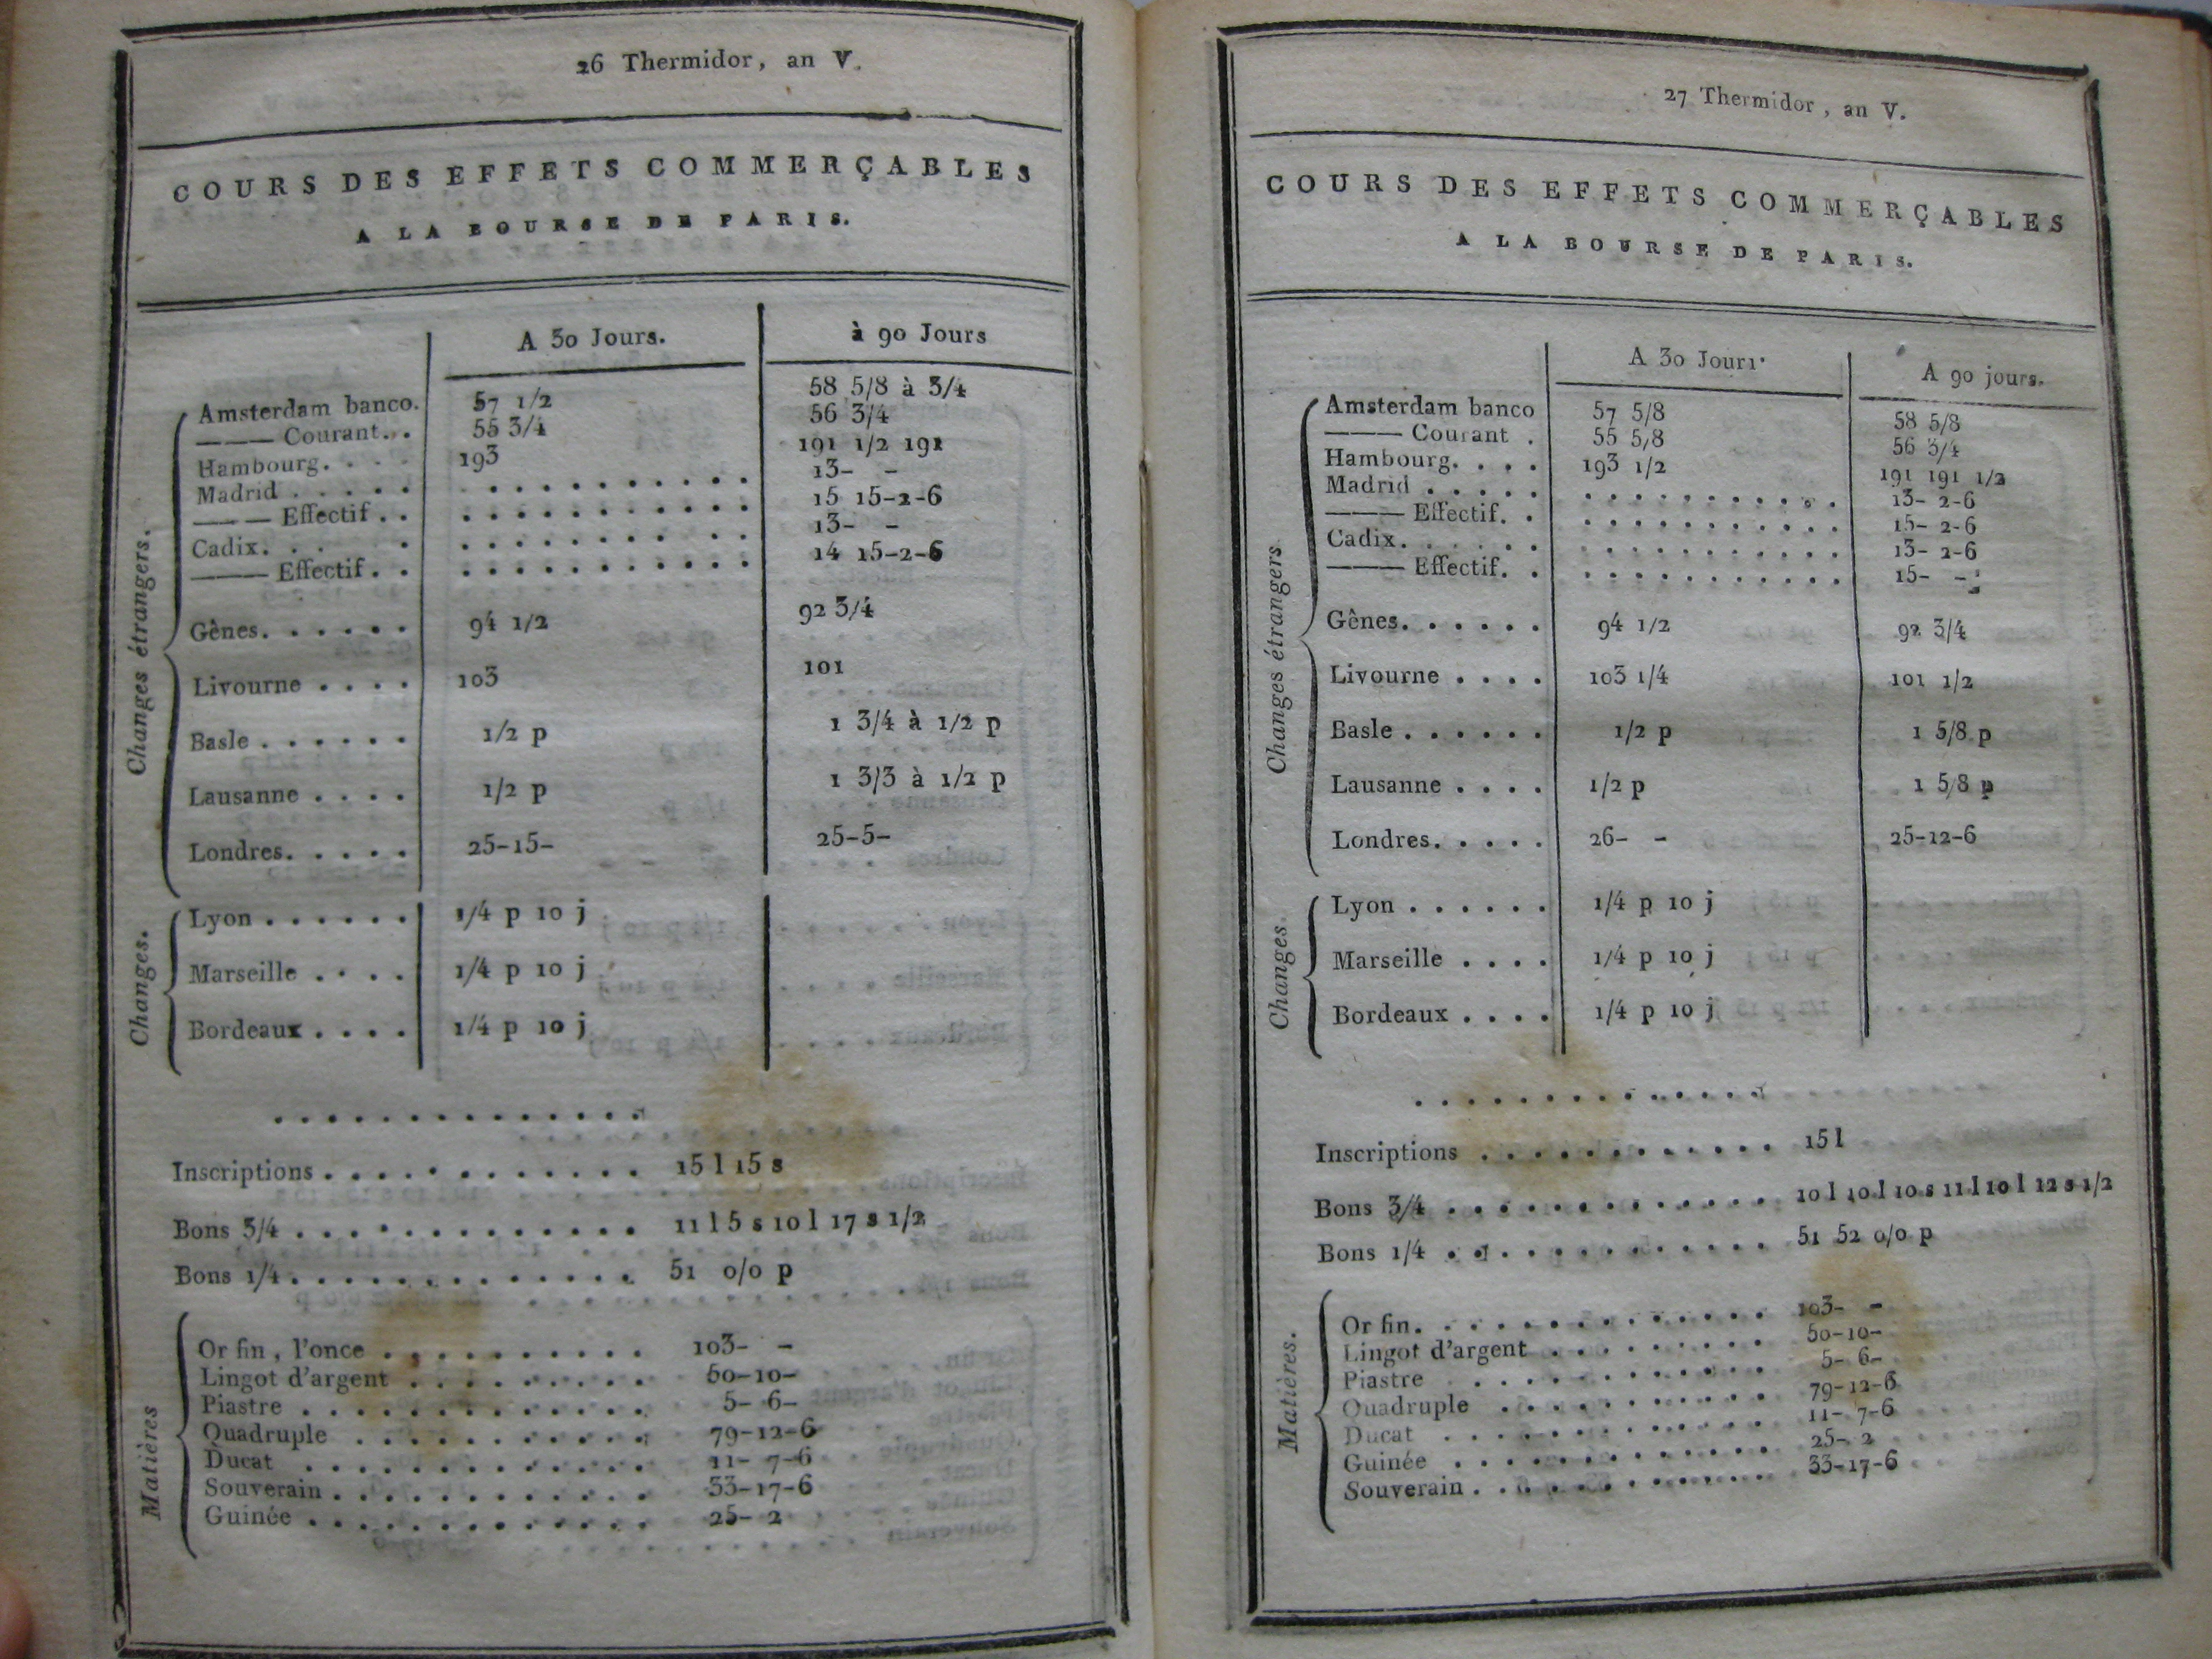 26 Thermidor, an V.
COURS DES EFFETS COMMERÇABLES
A LA BOURSE DE PARIS.
A 30 Jours. à 90 Jours
Changes étrangers.
Amsterdam banco. 57 1/2 58 5/8 à 3/4
——— Courant. . 55 3/4 56 3/4
Hambourg. . . . 193 191 1/2 191
Madrid . . . . . . . . . . . . . . . . 13- -
——— Effectif . . . . . . . . . . . . . 15 15-2-6
Cadix. . . . . . . . . . . . . . 13- -
——— Effectif . . . . . . . . . . . . . 14 15-2-6
Gênes. . . . . . 94 1/2 92 3/4
Livourne . . . . 103 101
Basle . . . . . . 1/2 p 1 3/4 à 1/2 p
Lausanne . . . . 1/2 p 1 3/3 à 1/2 p
Londres. . . . . 25-15- 25-5-
Changes.
Lyon . . . . . . 1/4 p 10 j
Marseille . . . . 1/4 p 10 j
Bordeaux . . . . 1/4 p 10 j
. . . . . . . . . . . . . . .
Inscriptions . . . . . . . . . . . . . 15 l 15 s
Bons 3/4 . . . . . . . . . . . . . 11 l 5 s 10 l 17 s 1/2
Bons 1/4 . . . . . . . . . . . . . 51 0/0 p
Matières
Or fin, l'once . . . . . . . . . . 103- -
Lingot d'argent . . . . . . . . . 50-10-
Piastre . . . . . . . . . . . . . 5- 6-
Quadruple . . . . . . . . . . . 79-12-6
Ducat . . . . . . . . . . . . . 11- 7-6
Souverain . . . . . . . . . . . . 33-17-6
Guinée . . . . . . . . . . . . . 25- 2
27 Thermidor, an V.
COURS DES EFFETS COMMERÇABLES
A LA BOURSE DE PARIS.
A 30 Jours. A 90 jours.
Changes étrangers
Amsterdam banco 57 5/8 58 5/8
——— Courant . 55 5/8 56 3/4
Hambourg. . . . 193 1/2 191 191 1/2
Madrid . . . . . . . . . . . . . . . . 13- 2-6
——— Effectif. . . . . . . . . . . . . 15- 2-6
Cadix. . . . . . . . . . . . . . . . 13- 2-6
——— Effectif. . . . . . . . . . . . . 15- -
Gênes. . . . . . 94 1/2 92 3/4
Livourne . . . . 103 1/4 101 1/2
Basle . . . . . . 1/2 p 1 5/8 p
Lausanne . . . . 1/2 p 1 5/8 p
Londres. . . . . 26- - 25-12-6
Changes.
Lyon . . . . . . 1/4 p 10 j
Marseille . . . . 1/4 p 10 j
Bordeaux . . . . 1/4 p 10 j
. . . . . . . . . . . . . . .
Inscriptions . . . . . . . . . . . . 15 l
Bons 3/4 . . . . . . . . . . . . . 10 l 10 l 10 s 11 l 10 l 12 s 1/2
Bons 1/4 . . . . . . . . . . . . . 51 52 0/0 p
Matières.
Or fin. . . . . . . . . . . . . . 103- -
Lingot d'argent . . . . . . . . . 50-10-
Piastre . . . . . . . . . . . . 5- 6-
Quadruple . . . . . . . . . . . 79-12-6
Ducat . . . . . . . . . . . . . 11- 7-6
Guinée . . . . . . . . . . . . . 25- 2
Souverain . . . . . . . . . . . . 33-17-6